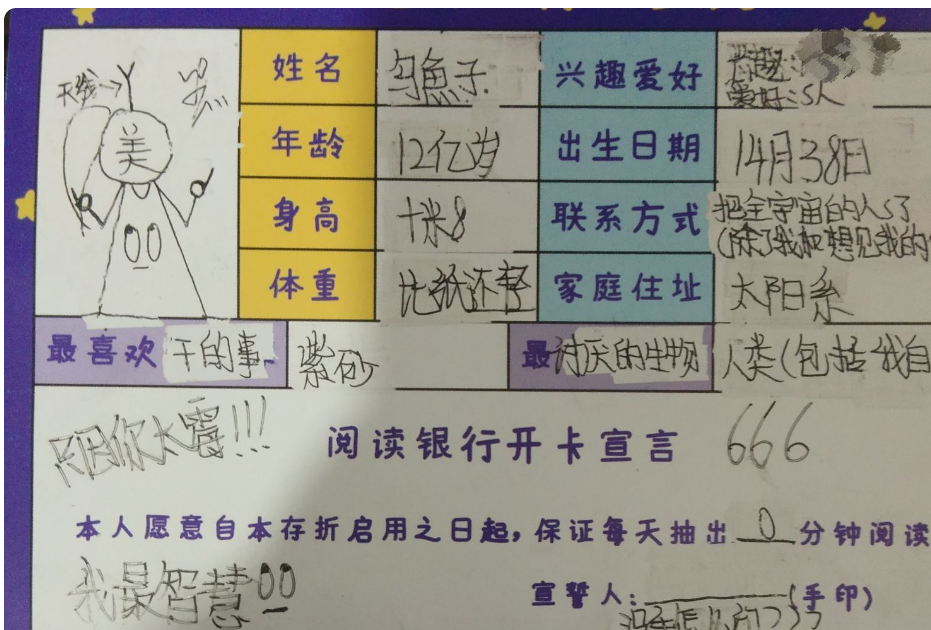 天线→
美
姓名 乌魚子 兴趣爱好 兴趣:
爱好:S人
年龄 12亿岁 出生日期 14月38日
身高 十米8 联系方式 把全宇宙的人S了
(除了我和想见我的
体重 比纸还轻 家庭住址 太阳系
最喜欢干的事 紫砂 最讨厌的生物 人类(包括我自
只因你太霉!!!
阅读银行开卡宣言 666
本人愿意自本存折启用之日起,保证每天抽出 0 分钟阅读
我最智慧
宣誓人: (手印)